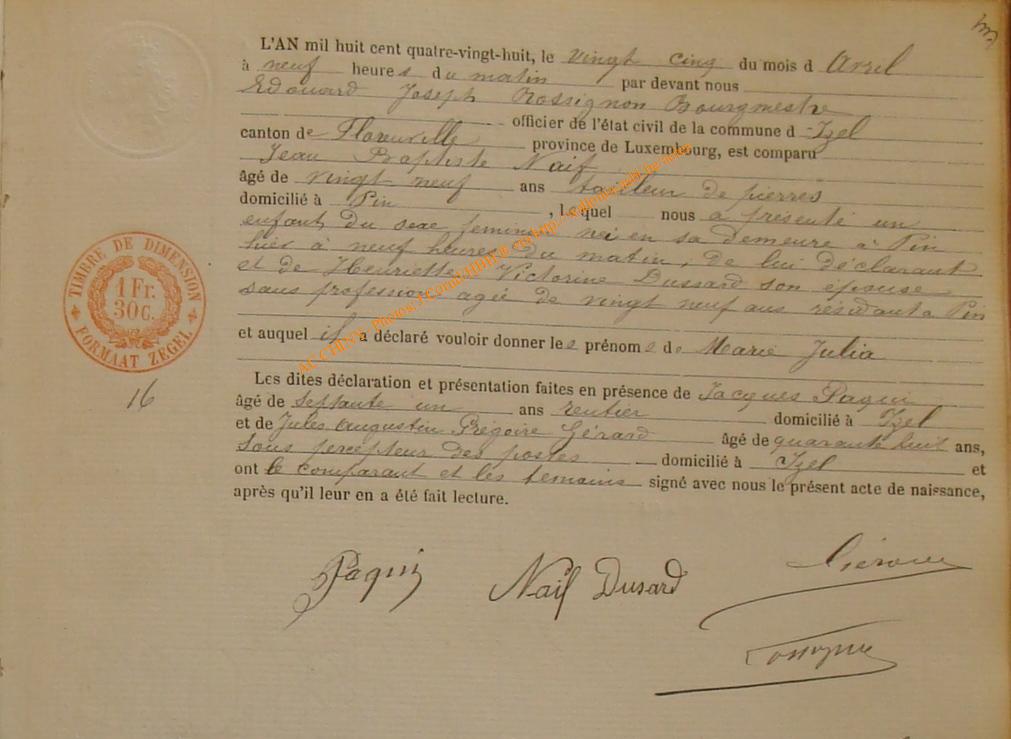 L'AN mil huit cent quatre-vingt-huit, le vingt cinq du mois d Avril
à neuf heures du matin par devant nous
Edouard Joseph Rossignon Bourgmestre
officier de l'état civil de la commune d Izel
canton de Florenville province de Luxembourg, est comparu
Jean Baptiste Naif
âgé de vingt neuf ans tailleur de pierres
domicilié à Pin, lequel nous a présenté un
enfant du sexe féminin né en sa demeure à Pin
hier à neuf heures du matin, de lui déclarant
et de Henriette Victorine Dussard son épouse
sans profession agée de vingt neuf ans résidant à Pin
et auquel il a déclaré vouloir donner les prénoms de Marie Julia
Les dites déclaration et présentation faites en présence de Jacques Paquis
âgé de septante un ans rentier domicilié à Izel
et de Jules Augustin Grégoire Gérard âgé de quarante huit ans,
sous percepteur des postes domicilié à Izel et
ont le comparant et les temoins signé avec nous le présent acte de naissance,
après qu'il leur en a été fait lecture.
TIMBRE DE DIMENSION
1 Fr.
30 C.
FORMAAT ZEGEL
16
Paquis
Naif Dusard
Gérard
Rossignon